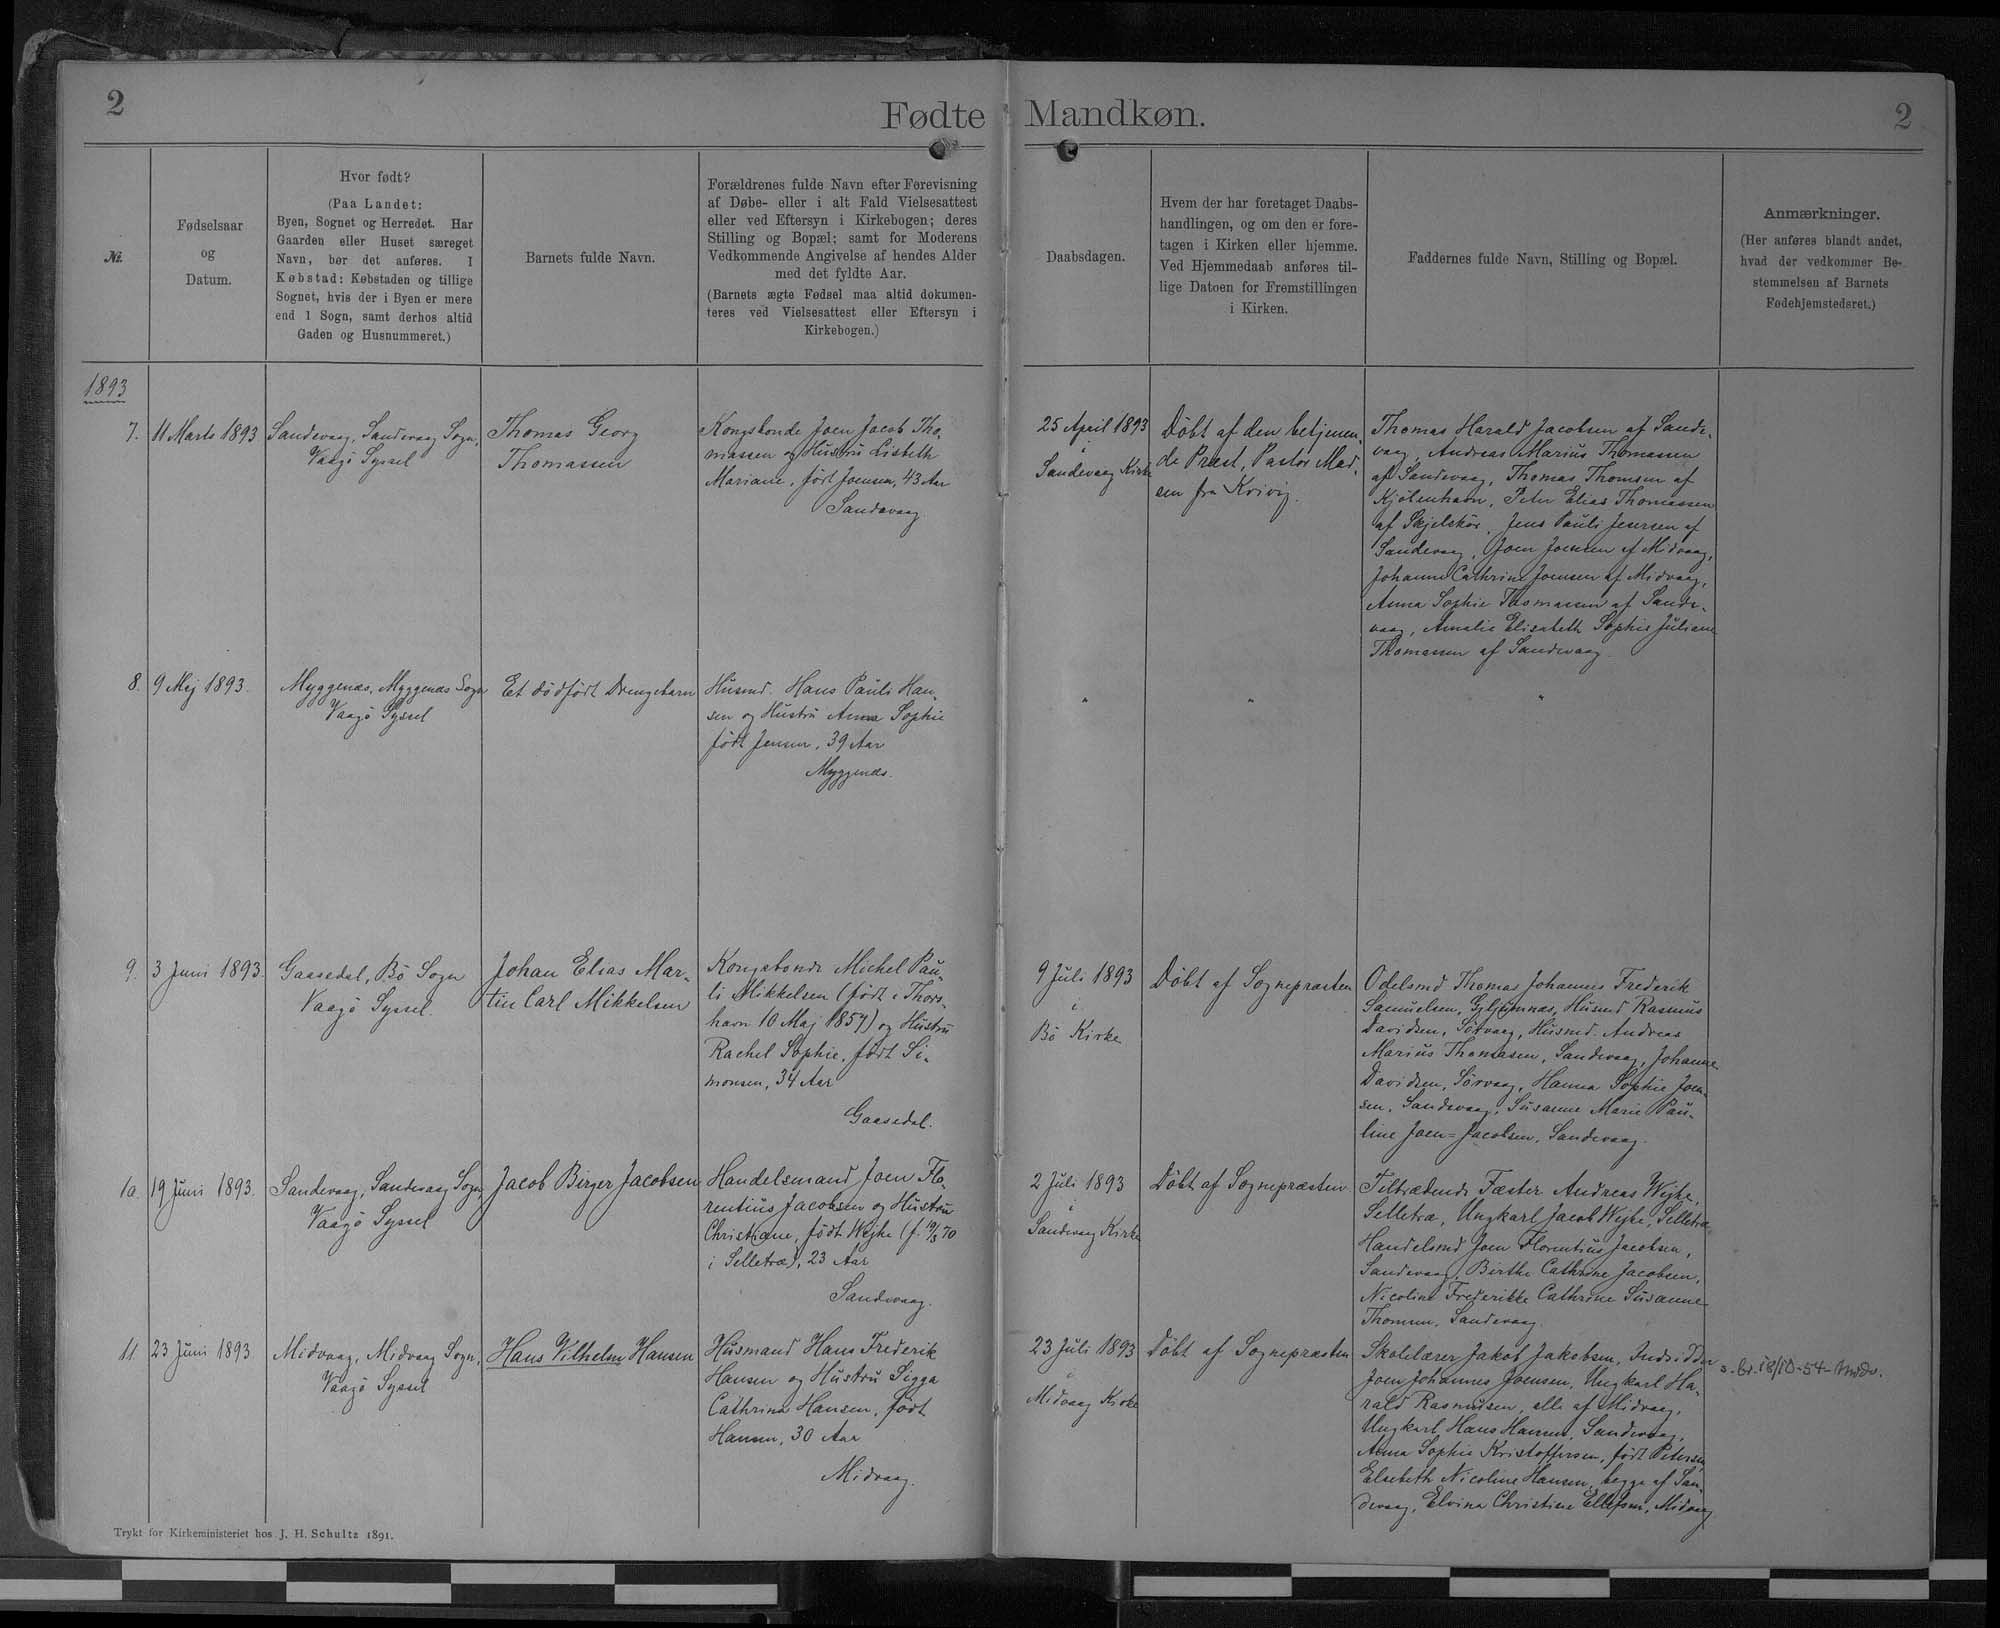 2
Fødte
Mandkøn.
2
№
Fødselsaar
og
Datum.
Hvor født?
(Paa Landet:
Byen, Sognet og Herredet. Har
Gaarden eller Huset særeget
Navn, bør det anføres. I
Købstad: Købstaden og tillige
Sognet, hvis der i Byen er mere
end 1 Sogn, samt derhos altid
Gaden og Husnummeret.)
Barnets fulde Navn.
Forældrenes fulde Navn efter Forevisning
af Døbe- eller i alt Fald Vielsesattest
eller ved Eftersyn i Kirkebogen; deres
Stilling og Bopæl; samt for Moderens
Vedkommende Angivelse af hendes Alder
med det fyldte Aar.
(Barnets ægte Fødsel maa altid dokumen-
teres ved Vielsesattest eller Eftersyn i
Kirkebogen.)
Daabsdagen.
Hvem der har foretaget Daabs-
handlingen, og om den er fore-
tagen i Kirken eller hjemme.
Ved Hjemmedaab anføres til-
lige Datoen for Fremstillingen
i Kirken.
Faddernes fulde Navn, Stilling og Bopæl.
Anmærkninger.
(Her anføres blandt andet,
hvad der vedkommer Be-
stemmelsen af Barnets
Fødehjemstedsret.)
1893
7.
11 Marts 1893
Sandevaag, Sandevaag Sogn,
Vaagö Syssel
Thomas Georg
Thomassen
Kongsbonde Joen Jacob Tho-
massen og Hustru Lisbeth
Mariane, født Joensen, 43 Aar
Sandevaag
25 April 1893
i
Sandevaag Kirke
Döbt af den betjenen-
de Præst, Pastor Mad-
sen fra Kvivig.
Thomas Harald Jacobsen af Sande-
vaag, Andreas Marius Thomassen
af Sandevaag, Thomas Thomsen af
Kjölenhavn, Peter Elias Thomassen
af Skjelskör, Jens Pauli Jensen af
Sandevaag, Joen Joensen af Midvaag,
Johanne Cathrine Joensen af Midvaag,
Anna Sophie Thomassen af Sande-
vaag, Amalie Elisabeth Sophie Juliane
Thomassen af Sandevaag.
8.
9 Maj 1893.
Myggenæs, Myggenæs Sogn
Vaagö Syssel
Et dödfödt Drengebarn
Husmd. Hans Pauli Han-
sen og Hustru Anna Sophie
födt Jensen, 39 Aar
Myggenæs.
"
"
"
9.
3 Juni 1893.
Gaasedal, Bö Sogn
Vaagö Syssel.
Johan Elias Mar-
tin Carl Mikkelsen
Kongsbonde Michel Pau-
li Mikkelsen (født i Thors-
havn 10 Maj 1857) og Hustru
Rachel Sophie, født Si-
monsen, 34 Aar
Gaasedal.
9 Juli 1893
i
Bö Kirke
Döbt af Sognepræsten
Odelsmd Thomas Johannes Frederik
Samuelsen, Husmd Rasmus
Davidsen, Sörvaag, Husmd. Andreas
Marius Thomasen, Sandevaag, Johanne
Davidsen, Sörvaag, Hanna Sophie Joen-
sen, Sandevaag, Susanne Marie Pau-
line Joen=Jacobsen, Sandevaag.
10.
19 Juni 1893.
Sandevaag, Sandevaag Sogn,
Vaagö Syssel
Jacob Birger Jacobsen
Handelsmand Joen Flo-
rentius Jacobsen og Hustru
Christiane, født Wejhe (f. 19/3 70
i Selletræ), 23 Aar
Sandevaag.
2 Juli 1893
i
Sandevaag Kirke
Döbt af Sognepræsten
Tiltrædende Fæster Andreas Wejhe,
Selletræ, Ungkarl Jacob Wejhe, Selletræ
Handelsmd Joen Florentius Jacobsen,
Sandevaag, Birthe Cathrine Jacobsen,
Nicoline Frederikke Cathrine Susanne
Thomsen, Sandevaag.
11.
23 Juni 1893
Midvaag, Midvaag Sogn,
Vaagö Syssel
Hans Vilhelm Hansen
Husmand Hans Frederik
Hansen og Hustru Sigga
Cathrina Hansen, født
Hansen, 30 Aar
Midvaag.
23 Juli 1893
i
Midvaag Kirke
Döbt af Sognepræsten
Skolelærer Jakob Jakobsen, Indsidder
Joen Johannes Joensen, Ungkarl Ha-
rald Rasmusen, alle af Midvaag,
Ungkarl Hans Hansen, Sandevaag,
Anna Sophie Kristoffersen, født Petersen
Elsebeth Nicoline Hansen, begge af San-
devaag, Elvina Christine Ellefsen, Midvaag
s. br. 18/10-54-Midv.
Trykt for Kirkeministeriet hos J. H. Schultz 1891.